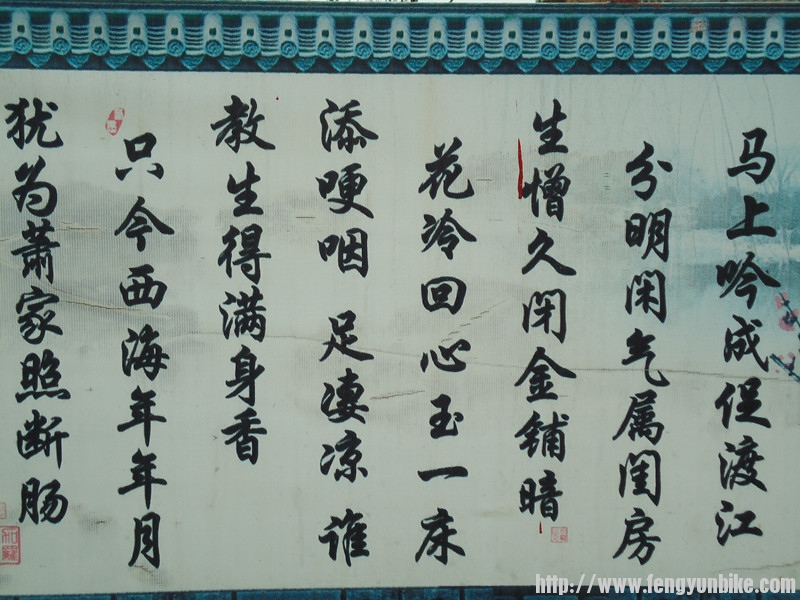 马上吟成促渡江
分明闲气属闺房
生憎久闭金铺暗
花冷回心玉一床
添哽咽 足凄凉 谁
教生得满身香
只今西海年年月
犹为萧家照断肠
http://www.fengyunbike.com/